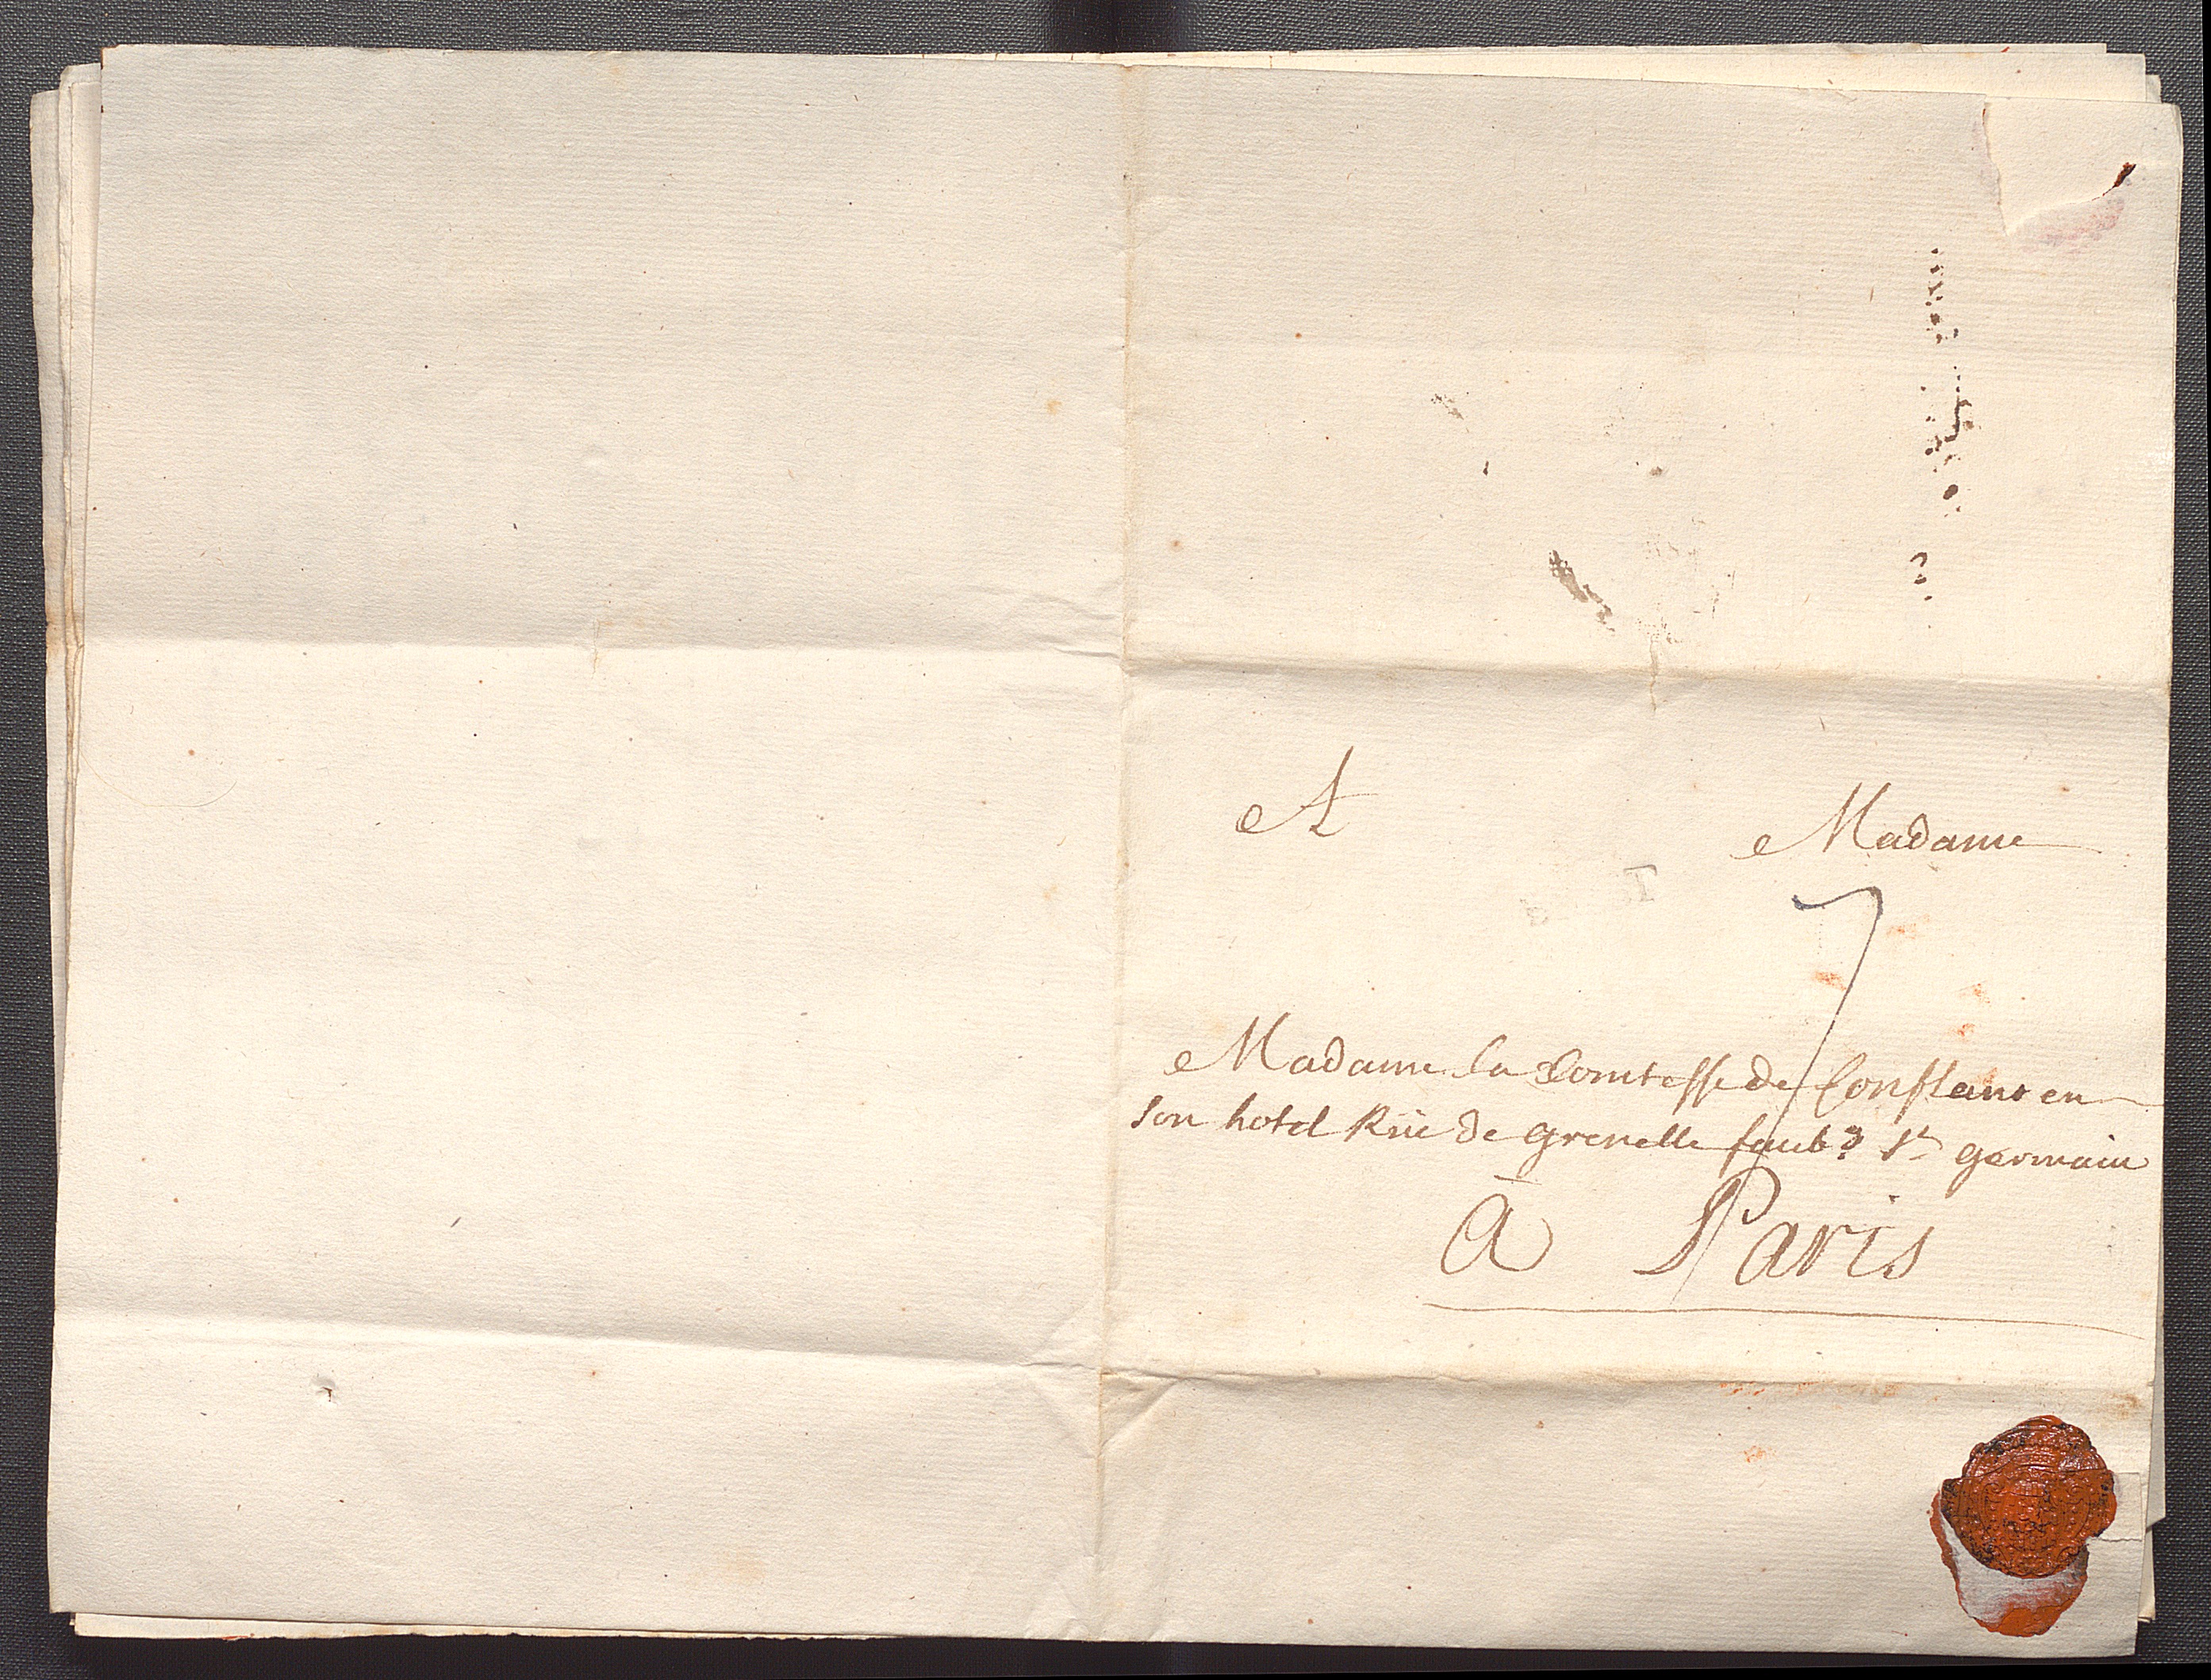 A Madame
7
Madame la Comtesse de Conflans en
son hotel Rüe de grenelle faubg St germain
A Paris